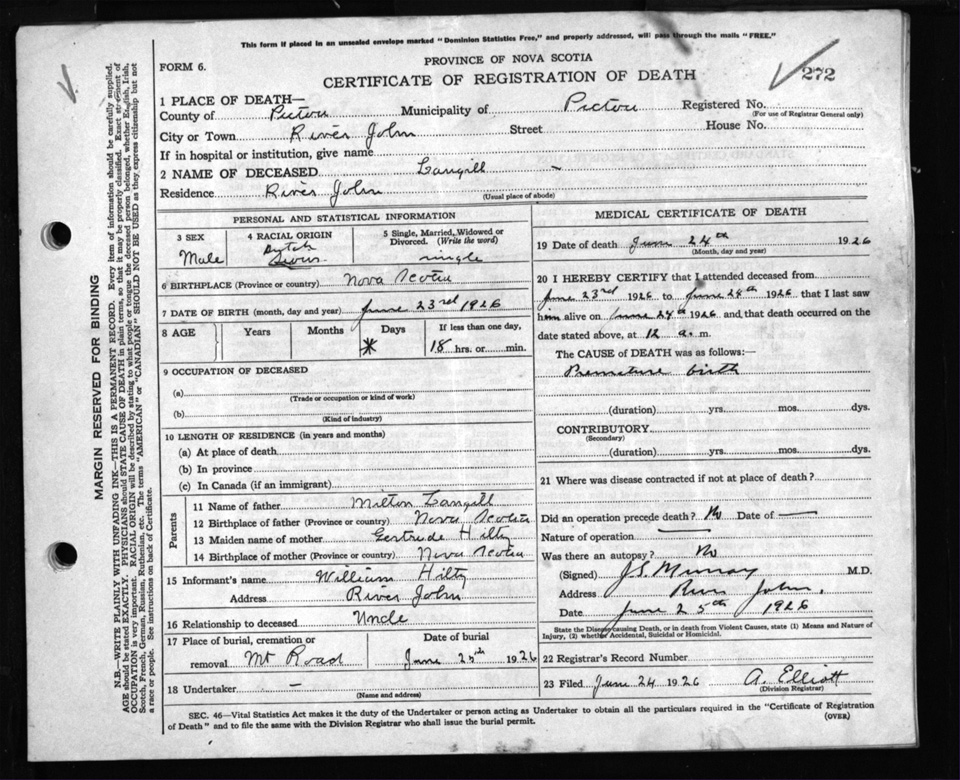 This form if placed in an unsealed envelope marked "Dominion Statistics Free," and properly addressed, will pass through the mails "FREE."
FORM 6.
PROVINCE OF NOVA SCOTIA
CERTIFICATE OF REGISTRATION OF DEATH
272
1 PLACE OF DEATH—
County of Pictou Municipality of Pictou Registered No.
(For use of Registrar General only)
City or Town River John Street House No.
If in hospital or institution, give name
2 NAME OF DECEASED Langill —
Residence River John
(Usual place of abode)
PERSONAL AND STATISTICAL INFORMATION
3 SEX 4 RACIAL ORIGIN 5 Single, Married, Widowed or Divorced. (Write the word)
Male Dutch Swiss single
6 BIRTHPLACE (Province or country) Nova Scotia
7 DATE OF BIRTH (month, day and year) June 23rd 1926
8 AGE Years Months Days If less than one day,
18 hrs. or min.
9 OCCUPATION OF DECEASED
(a)
(Trade or occupation or kind of work)
(b)
(Kind of industry)
10 LENGTH OF RESIDENCE (in years and months)
(a) At place of death
(b) In province
(c) In Canada (if an immigrant)
Parents
11 Name of father Milton Langill
12 Birthplace of father (Province or country) Nova Scotia
13 Maiden name of mother Gertrude Hilty
14 Birthplace of mother (Province or country) Nova Scotia
15 Informant's name William Hilty
Address River John
16 Relationship to deceased Uncle
17 Place of burial, cremation or removal Mt Road
Date of burial June 25th 1926
18 Undertaker —
(Name and address)
MEDICAL CERTIFICATE OF DEATH
19 Date of death June 24th 1926
(Month, day and year)
20 I HEREBY CERTIFY that I attended deceased from
June 23rd 1926 to June 24th 1926 that I last saw
him alive on June 24th 1926 and that death occurred on the
date stated above, at 12 a. m.
The CAUSE of DEATH was as follows:—
Premature birth
(duration) yrs. mos. dys.
CONTRIBUTORY
(Secondary)
(duration) yrs. mos. dys.
21 Where was disease contracted if not at place of death?
Did an operation precede death? No Date of —
Nature of operation —
Was there an autopsy? No
(Signed) J.S. Murray M.D.
Address River John.
Date June 25th 1926
State the Disease causing Death, or in death from Violent Causes, state (1) Means and Nature of
Injury, (2) whether Accidental, Suicidal or Homicidal.
22 Registrar's Record Number
23 Filed June 24 1926 A. Elliott
(Division Registrar)
SEC. 46—Vital Statistics Act makes it the duty of the Undertaker or person acting as Undertaker to obtain all the particulars required in the "Certificate of Registration
of Death" and to file the same with the Division Registrar who shall issue the burial permit.
(OVER)
MARGIN RESERVED FOR BINDING
N.B.—WRITE PLAINLY WITH UNFADING INK—THIS IS A PERMANENT RECORD. Every item of information should be carefully supplied.
AGE should be stated EXACTLY. PHYSICIANS should STATE CAUSE OF DEATH in plain terms, so that it may be properly classified. Exact statement of
OCCUPATION is very important. RACIAL ORIGIN will be described by stating to what people or tongue the deceased person belonged, whether English, Irish,
Scotch, French, German, Russian, Ruthenian, etc. The terms "AMERICAN" or "CANADIAN" SHOULD NOT BE USED as they express citizenship but not
a race or people. See instructions on back of Certificate.